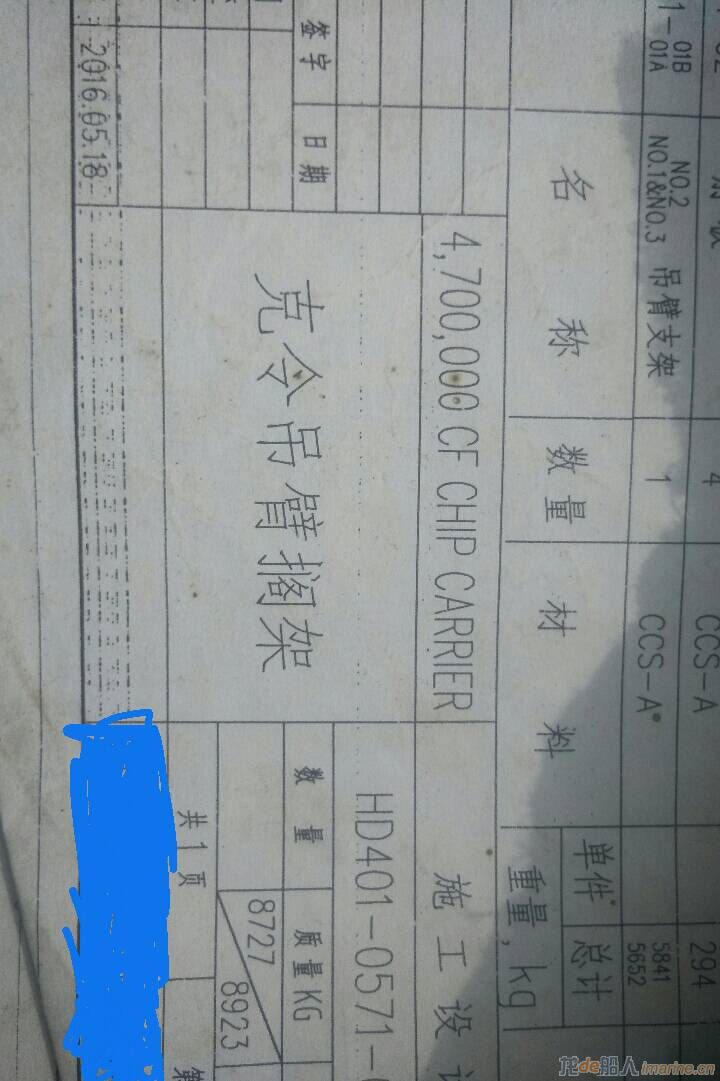 01B
01A
NO.2
NO.1&NO.3 吊臂支架
1
CCS-A
5841
5652
4
CCS-A
294
名 称
数量
材 料
单件
总计
重量,kg
签字
日期
2016.05.18
4,700,000 CF CHIP CARRIER
克令吊臂搁架
施工设
HD401-0571-
数量
质量KG
8727
8923
共1页
第
龙de船人 imarine.cn